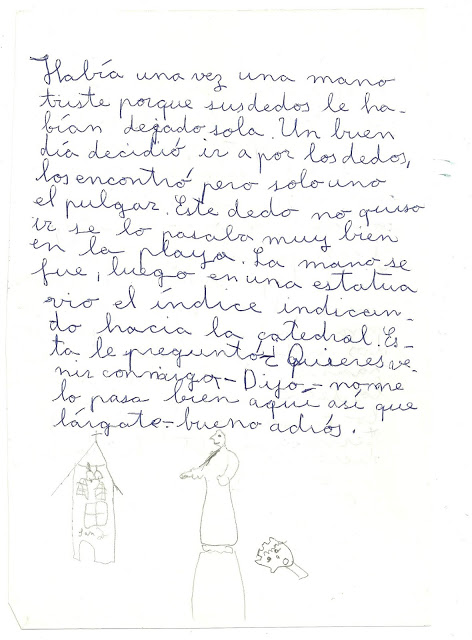 Había una vez una mano
triste porque sus dedos le ha-
bían dejado sola. Un buen
día decidió ir a por los dedos,
los encontró pero solo uno
el pulgar. Este dedo no quiso
ir se lo pasaba muy bien
en la playa. La mano se
fue, luego en una estatua
vio el índice indican-
do hacia la catedral. Es-
ta le preguntó -¿ Quieres ve-
nir conmigo - Dijo - no me
lo pasa bien aquí así que
lárgate - bueno adiós.